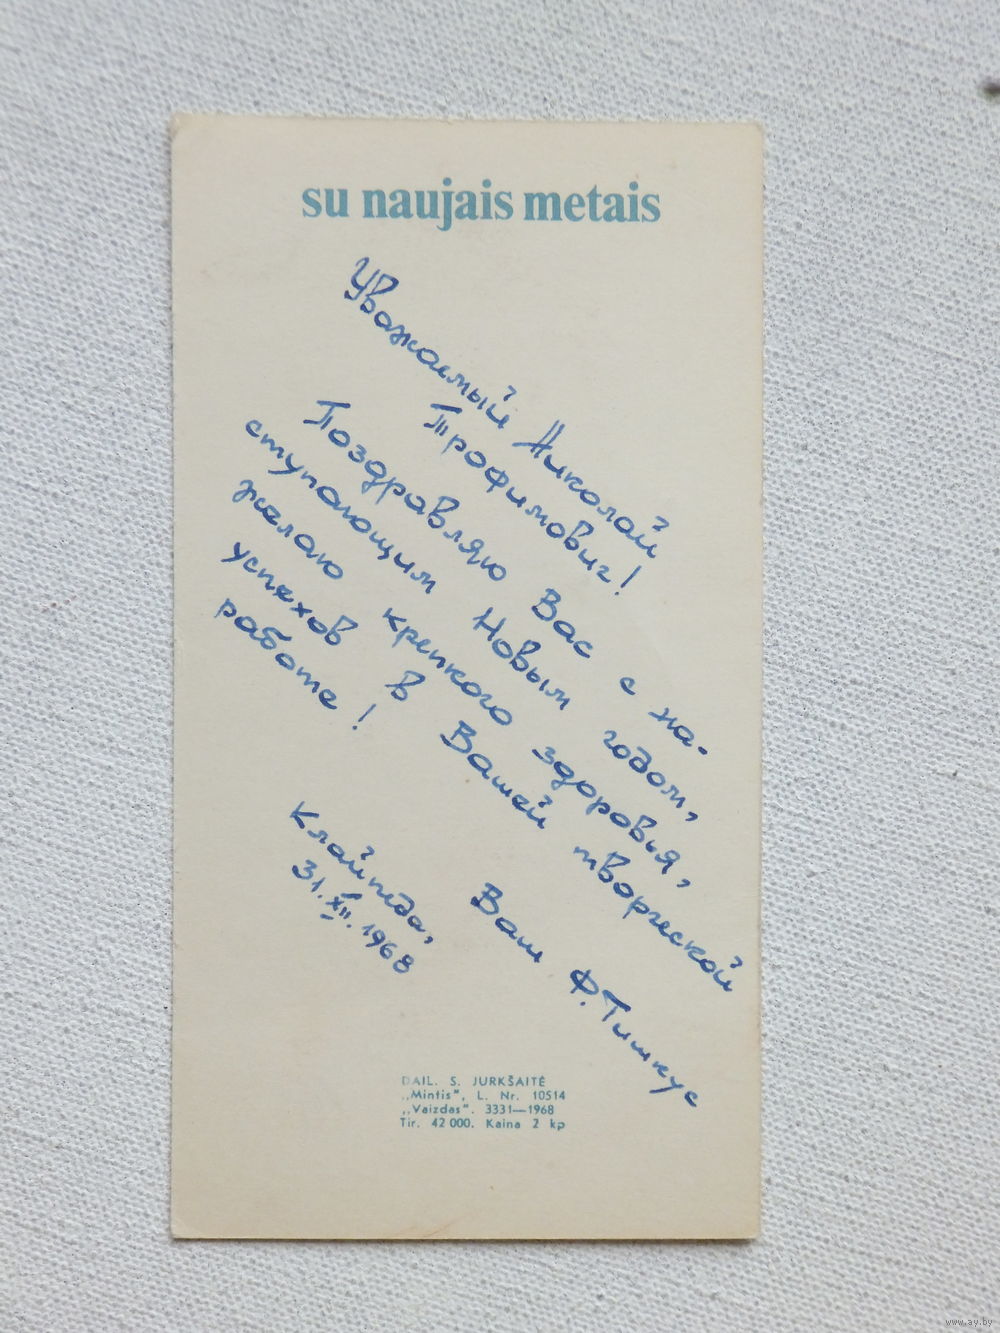 su naujais metais
Уважаемый Николай
Трофимович!
Поздравляю Вас с на-
ступающим Новым годом,
желаю крепкого здоровья,
успехов в Вашей творческой
работе!
Ваш Ф. Тишкус
Клайпеда,
31.XII.1968
DAIL. S. JURKŠAITĖ
„Mintis", L. Nr. 10514
„Vaizdas". 3331—1968
Tir. 42 000. Kaina 2 kp
www.ay.by